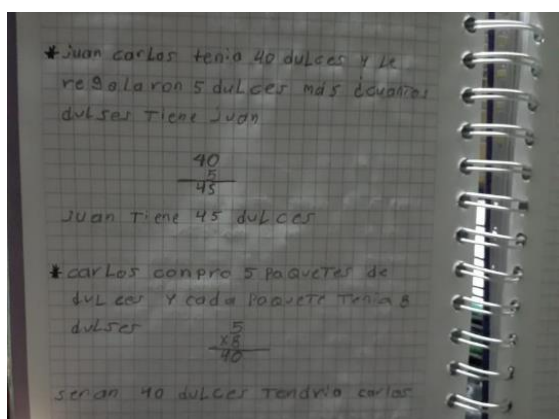 *juan carlos tenia 40 dulces y le
regalaron 5 dulces mas ¿cuantos
dulses Tiene Juan
40
5
45
Juan Tiene 45 dulces
*carlos conpro 5 paqueTes de
dulces y cada paqueTe Tenia 8
dulses
5
x8
40
serian 40 dulces Tendria carlos